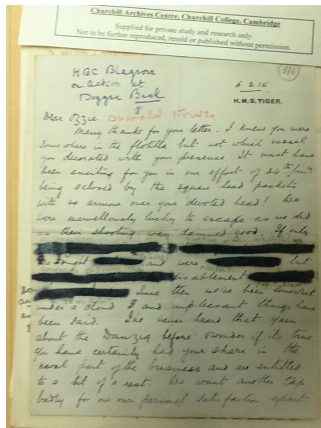 Churchill Archives Centre, Churchill College, Cambridge
Supplied for private study and research only.
Not to be further reproduced, resold or published without permission.
HBC Blagrove
on Action at
Dogger Bank
6 2 15
H.M.S. TIGER.
Dear Ozzie
Many thanks for your letter. I knew you were
somewhere in the flotilla but not which vessel
you decorated with your presence. It must have
been exciting for you in our effort of 24th
being by the square head
with no armour over your devoted head! We
were marvellously lucky to escape as we did
as their shooting was damned good. If only
and were but
disablement
Since then we've been somewhat
under a cloud & unpleasant things have
been said. I've never heard that yarn
about the Danzig before & wonder if its true.
You have certainly had your share in the
naval part of the business and are entitled
to a bit of a rest. We want another
badly for our own personal satisfaction apart